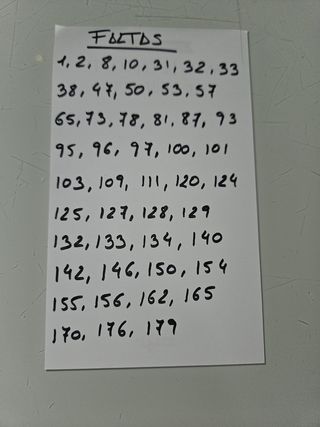 FALTAS
1, 2, 8, 10, 31, 32, 33
38, 47, 50, 53, 57
65, 73, 78, 81, 87, 93
95, 96, 97, 100, 101
103, 109, 111, 120, 124
125, 127, 128, 129
132, 133, 134, 140
142, 146, 150, 154
155, 156, 162, 165
170, 176, 179